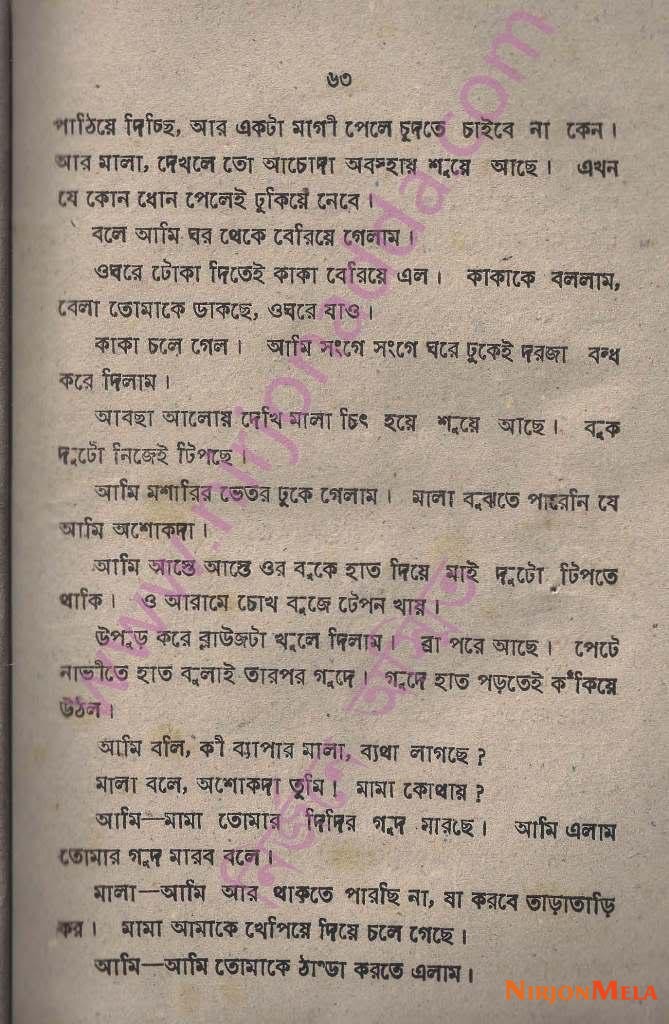 ৬৩
পাঠিয়ে দিচ্ছি, আর একটা মাগী পেলে চুদতে চাইবে না কেন।
আর মালা, দেখলে তো আচোদা অবস্হায় শুয়ে আছে। এখন
যে কোন ধোন পেলেই ঢুকিয়ে নেবে।
বলে আমি ঘর থেকে বেরিয়ে গেলাম।
ওঘরে টোকা দিতেই কাকা বেরিয়ে এল। কাকাকে বললাম,
বেলা তোমাকে ডাকছে, ওঘরে যাও।
কাকা চলে গেল। আমি সংগে সংগে ঘরে ঢুকেই দরজা বন্ধ
করে দিলাম।
আবছা আলোয় দেখি মালা চিৎ হয়ে শুয়ে আছে। বুক
দুটো নিজেই টিপছে।
আমি মশারির ভেতর ঢুকে গেলাম। মালা বুঝতে পারেনি যে
আমি অশোকদা।
আমি আস্তে আস্তে ওর বুকে হাত দিয়ে মাই দুটো টিপতে
থাকি। ও আরামে চোখ বুজে টেপন খায়।
উপুড় করে ব্লাউজটা খুলে দিলাম। ব্রা পরে আছে। পেটে
নাভীতে হাত বুলাই তারপর গুদে। গুদে হাত পড়তেই কঁকিয়ে
উঠল।
আমি বলি, কী ব্যাপার মালা, ব্যথা লাগছে?
মালা বলে, অশোকদা তুমি! মামা কোথায়?
আমি—মামা তোমার দিদির গুদ মারছে। আমি এলাম
তোমার গুদ মারব বলে।
মালা—আমি আর থাকতে পারছি না, যা করবে তাড়াতাড়ি
কর। মামা আমাকে খেপিয়ে দিয়ে চলে গেছে।
আমি—আমি তোমাকে ঠাণ্ডা করতে এলাম।
www.nirjonadda.com
নির্জনে
NIRJONMELA